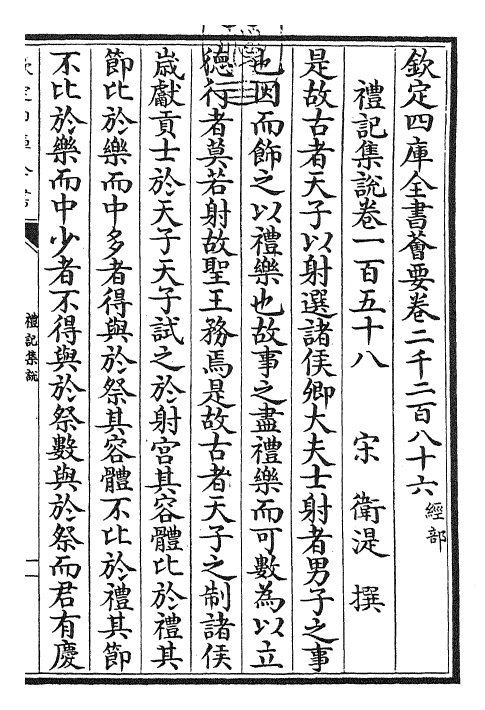 欽定四庫全書薈要卷二千二百八十六 經部
禮記集說卷一百五十八 宋 衛湜 撰
是故古者天子以射選諸侯卿大夫士射者男子之事
也因而飾之以禮樂也故事之盡禮樂而可數為以立
德行者莫若射故聖王務焉是故古者天子之制諸侯
歳獻貢士於天子天子試之於射宮其容體比於禮其
節比於樂而中多者得與於祭其容體不比於禮其節
不比於樂而中少者不得與於祭數與於祭而君有慶
禮記集說
一